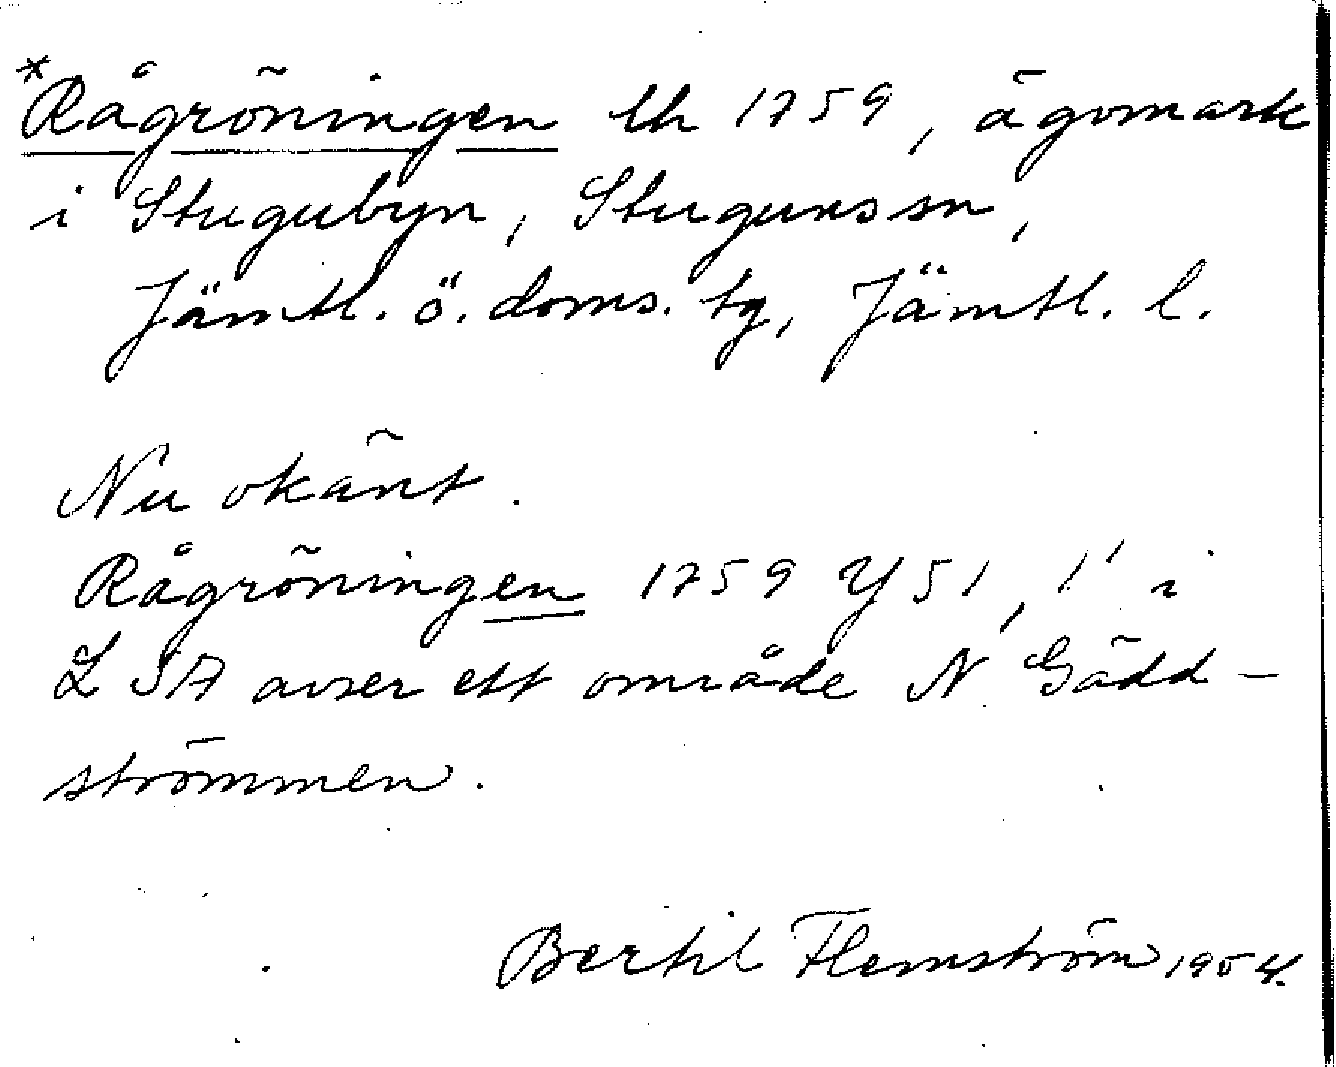 *Rågröningen lh 1759, ägomark
i Stugubyn, Stuguns sn,
Jämtl. ö. doms. tg, Jämtl. l.
Nu okänt.
Rågröningen 1759 Y51, 1' i
LSA avser ett område N Gädd-
strömmen.
Bertil Flemström 1954.